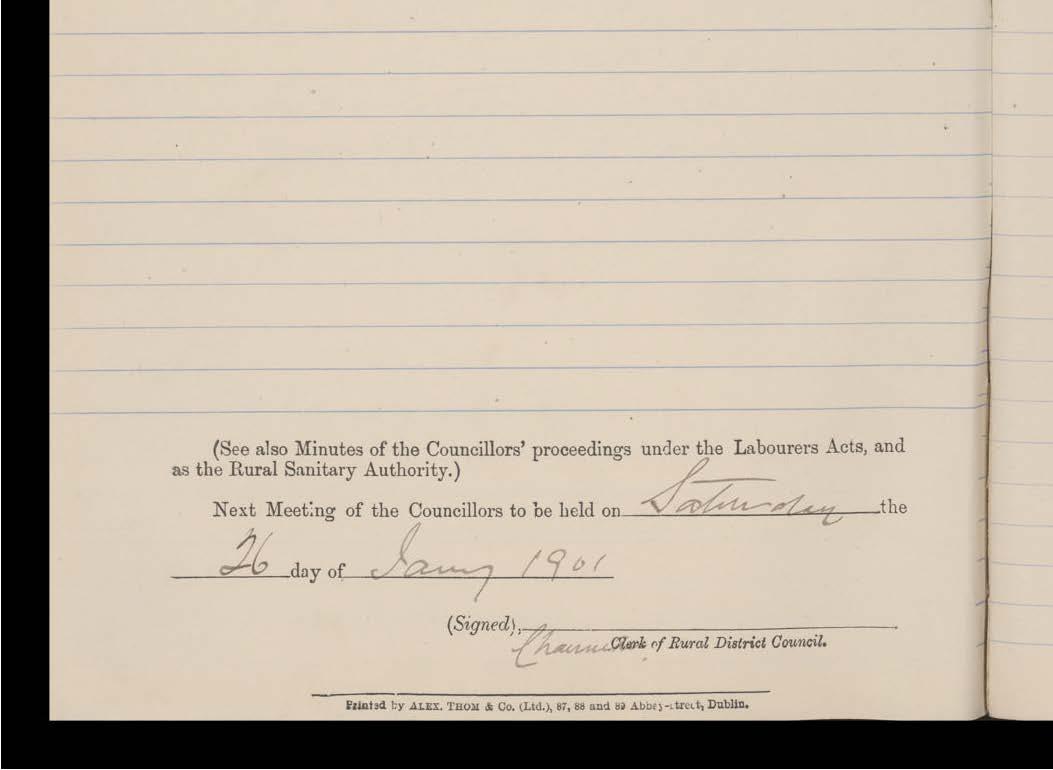 (See also Minutes of the Councillors' proceedings under the Labourers Acts, and
as the Rural Sanitary Authority.)
Next Meeting of the Councillors to be held on Saturday the
26 day of Jany 1901
(Signed),
Chairman Clerk of Rural District Council.
Printed by ALEX. THOM & Co. (Ltd.), 87, 88 and 89 Abbey-street, Dublin.